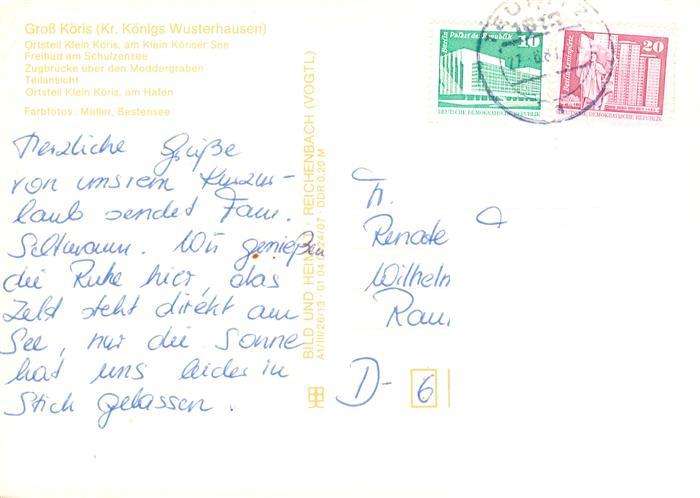 Groß Köris (Kr. Königs Wusterhausen)
Ortsteil Klein Köris, am Klein Köriser See
Freibad am Schulzensee
Zugbrücke über den Moddergraben
Teilansicht
Ortsteil Klein Köris, am Hafen
Farbfotos: Müller, Bestensee
Herzliche Grüße
von unsrem Kurzur-
laub sendet Fam.
Wir genießen
die Ruhe hier, das
Zelt steht direkt am
See, nur die Sonne
hat uns leider in
Stich gelassen.
BILD UND HEIMAT REICHENBACH (VOGTL)
A1/III/26/13 DDR 0,20 M
Berlin Palast der Republik
10
DEUTSCHE DEMOKRATISCHE REPUBLIK
20
DEUTSCHE DEMOKRATISCHE REPUBLIK
Fr.
Renate
Wilhelm
D- 6